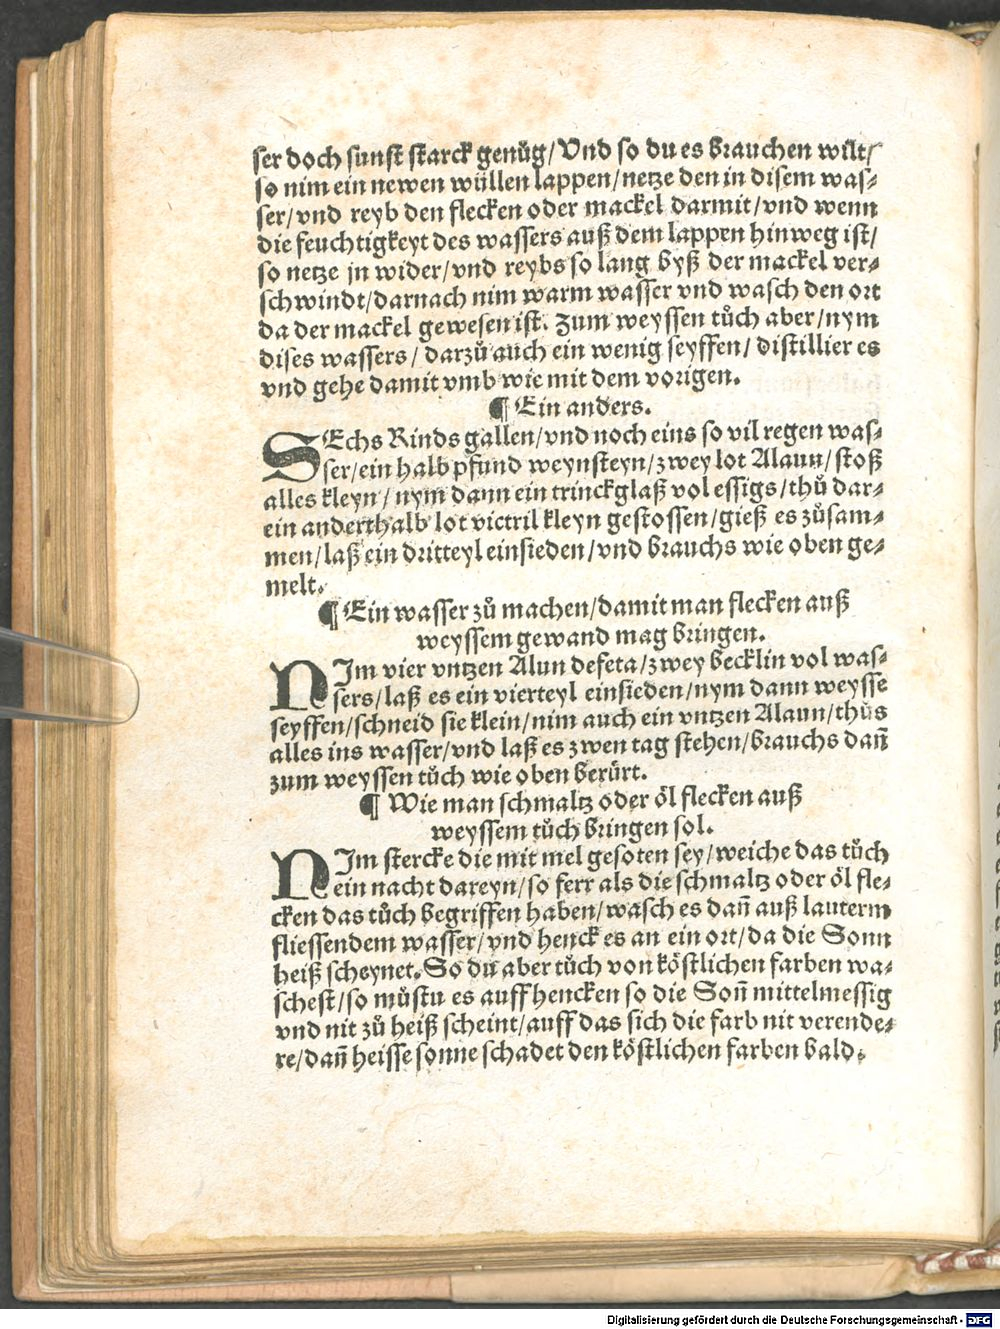 ser doch sunst starck genůg/ Vnd so du es brauchen wilt/
so nim ein newen wüllen lappen/ netze den in disem was⸗
ser/ vnd reyb den flecken oder mackel darmit/ vnd wenn
die feuchtigkeyt des wassers auß dem lappen hinweg ist/
so netze jn wider/ vnd reybs so lang byß der mackel ver⸗
schwindt/ darnach nim warm wasser vnd wasch den ort
da der mackel gewesen ist. Zum weyssen tůch aber/ nym
dises wassers/ darzů auch ein wenig seyffen/ distillier es
vnd gehe damit vmb wie mit dem vorigen.
¶ Ein anders.
SEchs Rinds gallen/ vnd noch eins so vil regen was⸗
ser/ ein halb pfund weynsteyn/ zwey lot Alaun/ stoß
alles kleyn/ nym dann ein trinckglaß vol essigs/ thů dar⸗
ein anderthalb lot victril kleyn gestossen/ gieß es zůsam⸗
men/ laß ein dritteyl einsieden/ vnd brauchs wie oben ge⸗
melt.
¶ Ein wasser zů machen/ damit man flecken auß
weyssem gewand mag bringen.
NIm vier vntzen Alun defeta/ zwey becklin vol was⸗
sers/ laß es ein vierteyl einsieden/ nym dann weysse
seyffen/ schneid sie klein/ nim auch ein vntzen Alaun/ thůs
alles ins wasser/ vnd laß es zwen tag stehen/ brauchs dañ
zum weyssen tůch wie oben berürt.
¶ Wie man schmaltz oder öl flecken auß
weyssem tůch bringen sol.
NIm stercke die mit mel gesoten sey/ weiche das tůch
ein nacht dareyn/ so ferr als die schmaltz oder öl fle⸗
cken das tůch begriffen haben/ wasch es dañ auß lauterm
fliessendem wasser/ vnd henck es an ein ort/ da die Sonn
heiß scheynet. So du aber tůch von köstlichen farben wa⸗
schest/ so můstu es auff hencken so die Soñ mittelmessig
vnd nit zů heiß scheint/ auff das sich die farb nit verende⸗
re/ dañ heisse sonne schadet den köstlichen farben bald.
Digitalisierung gefördert durch die Deutsche Forschungsgemeinschaft - DFG